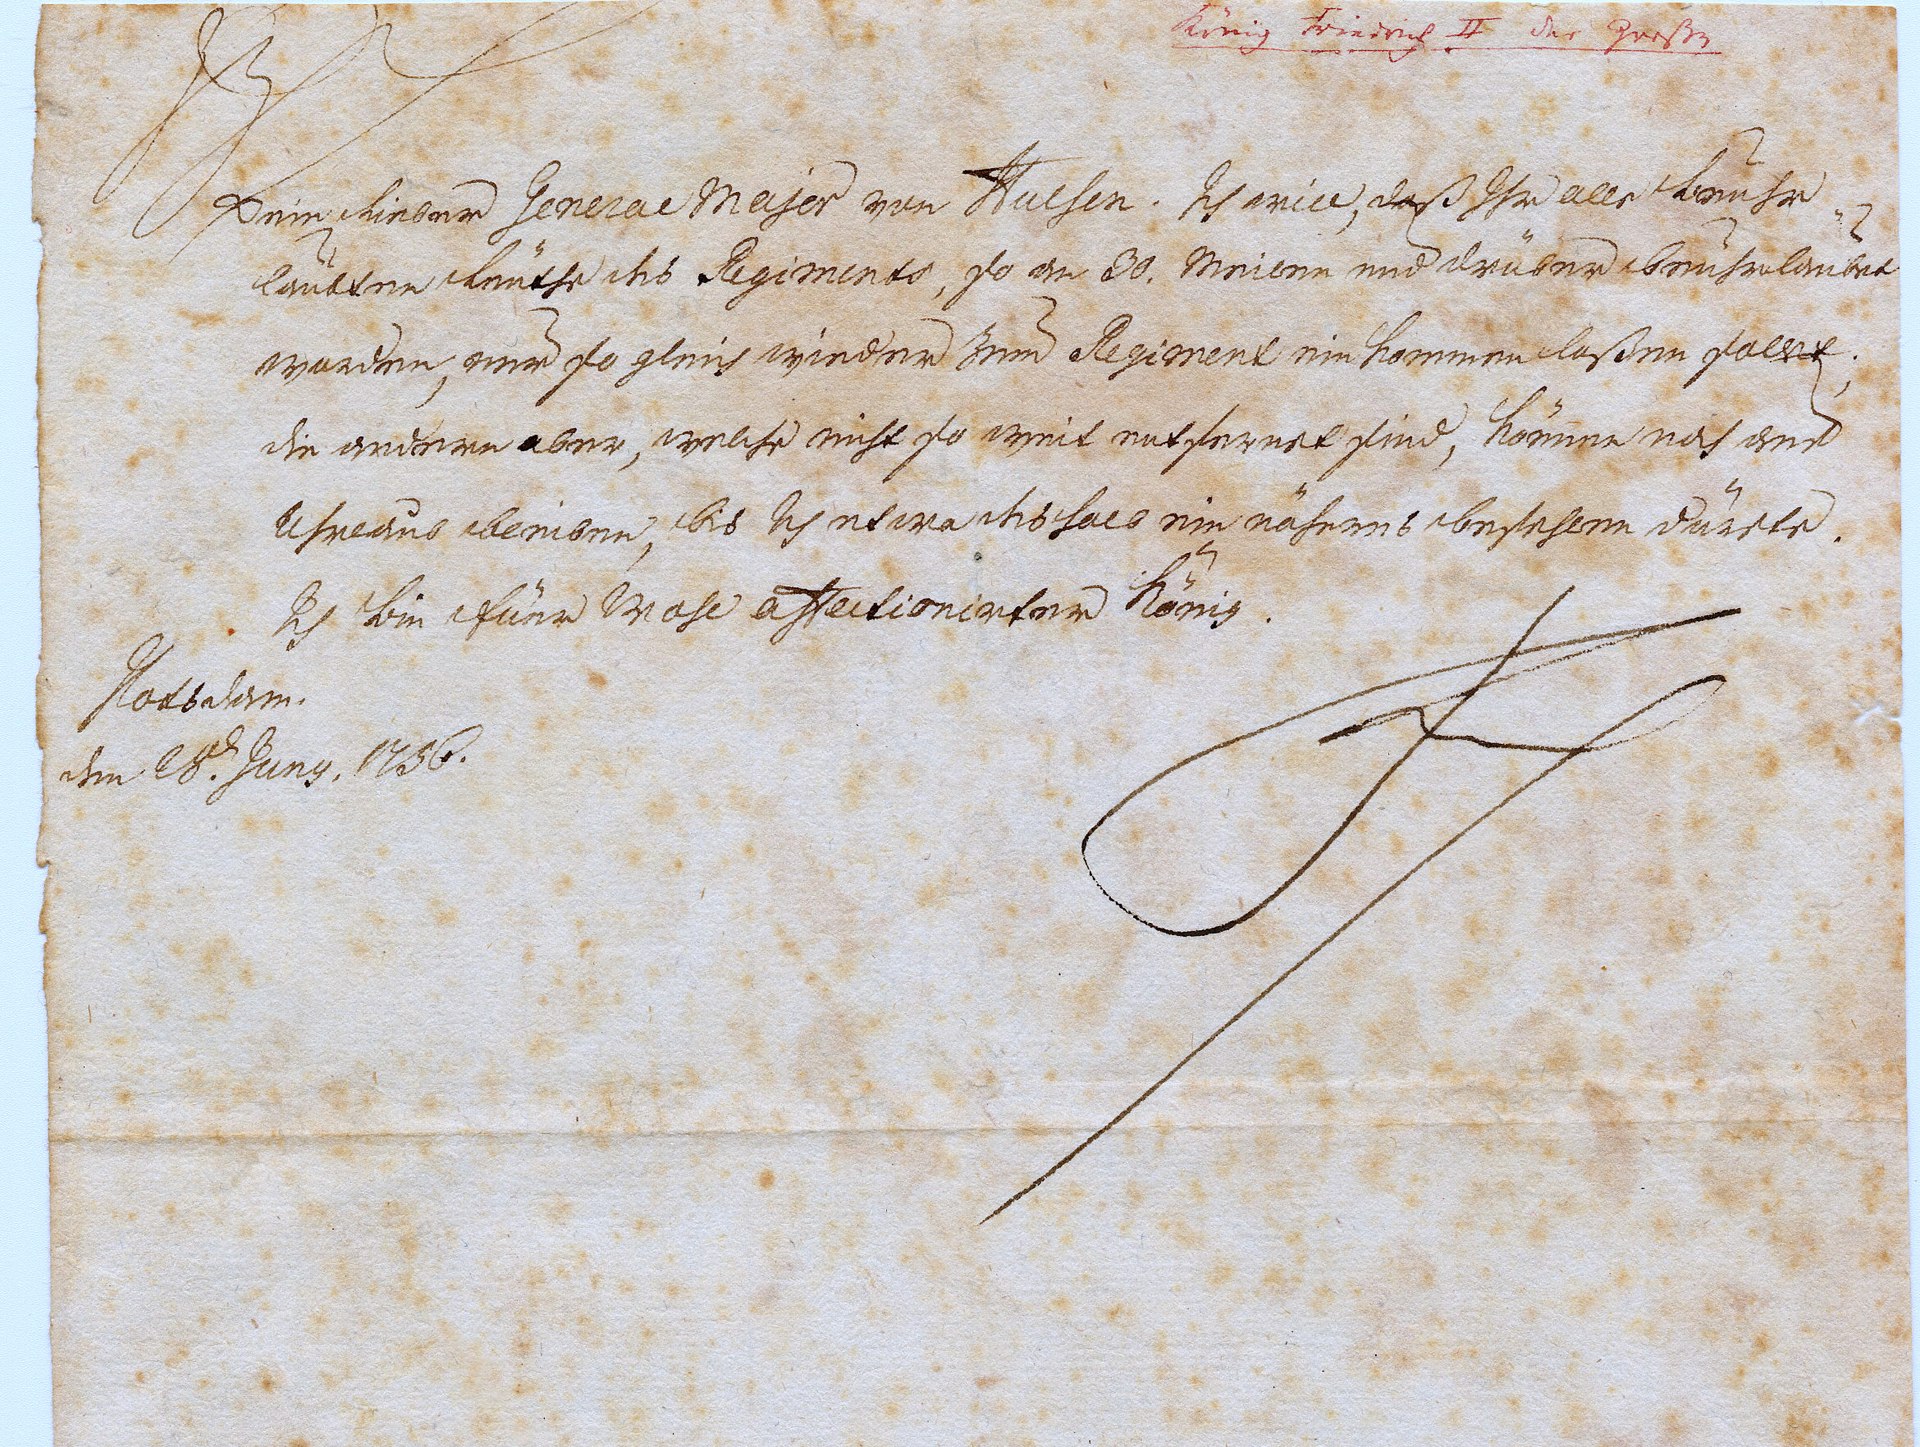 König Friedrich II der Große
Mein lieber General Major von Huelsen. Ich will, daß Ihr alle beuhr-
laubten Leuthe des Regiments, so an 30. Meilen und drüber beuhrlaubet
worden, nur so gleich wieder zum Regiment ein kommen laßen sollet;
die andern aber, welche nicht so weit entfernet sind, können noch auf
Uhrlaub bleiben, bis Ich etwa deshalb ein näheres befehlen dürfte.
Ich bin Euer Wohl affectionirter König.
Potsdam.
den 28. Juny. 1756.